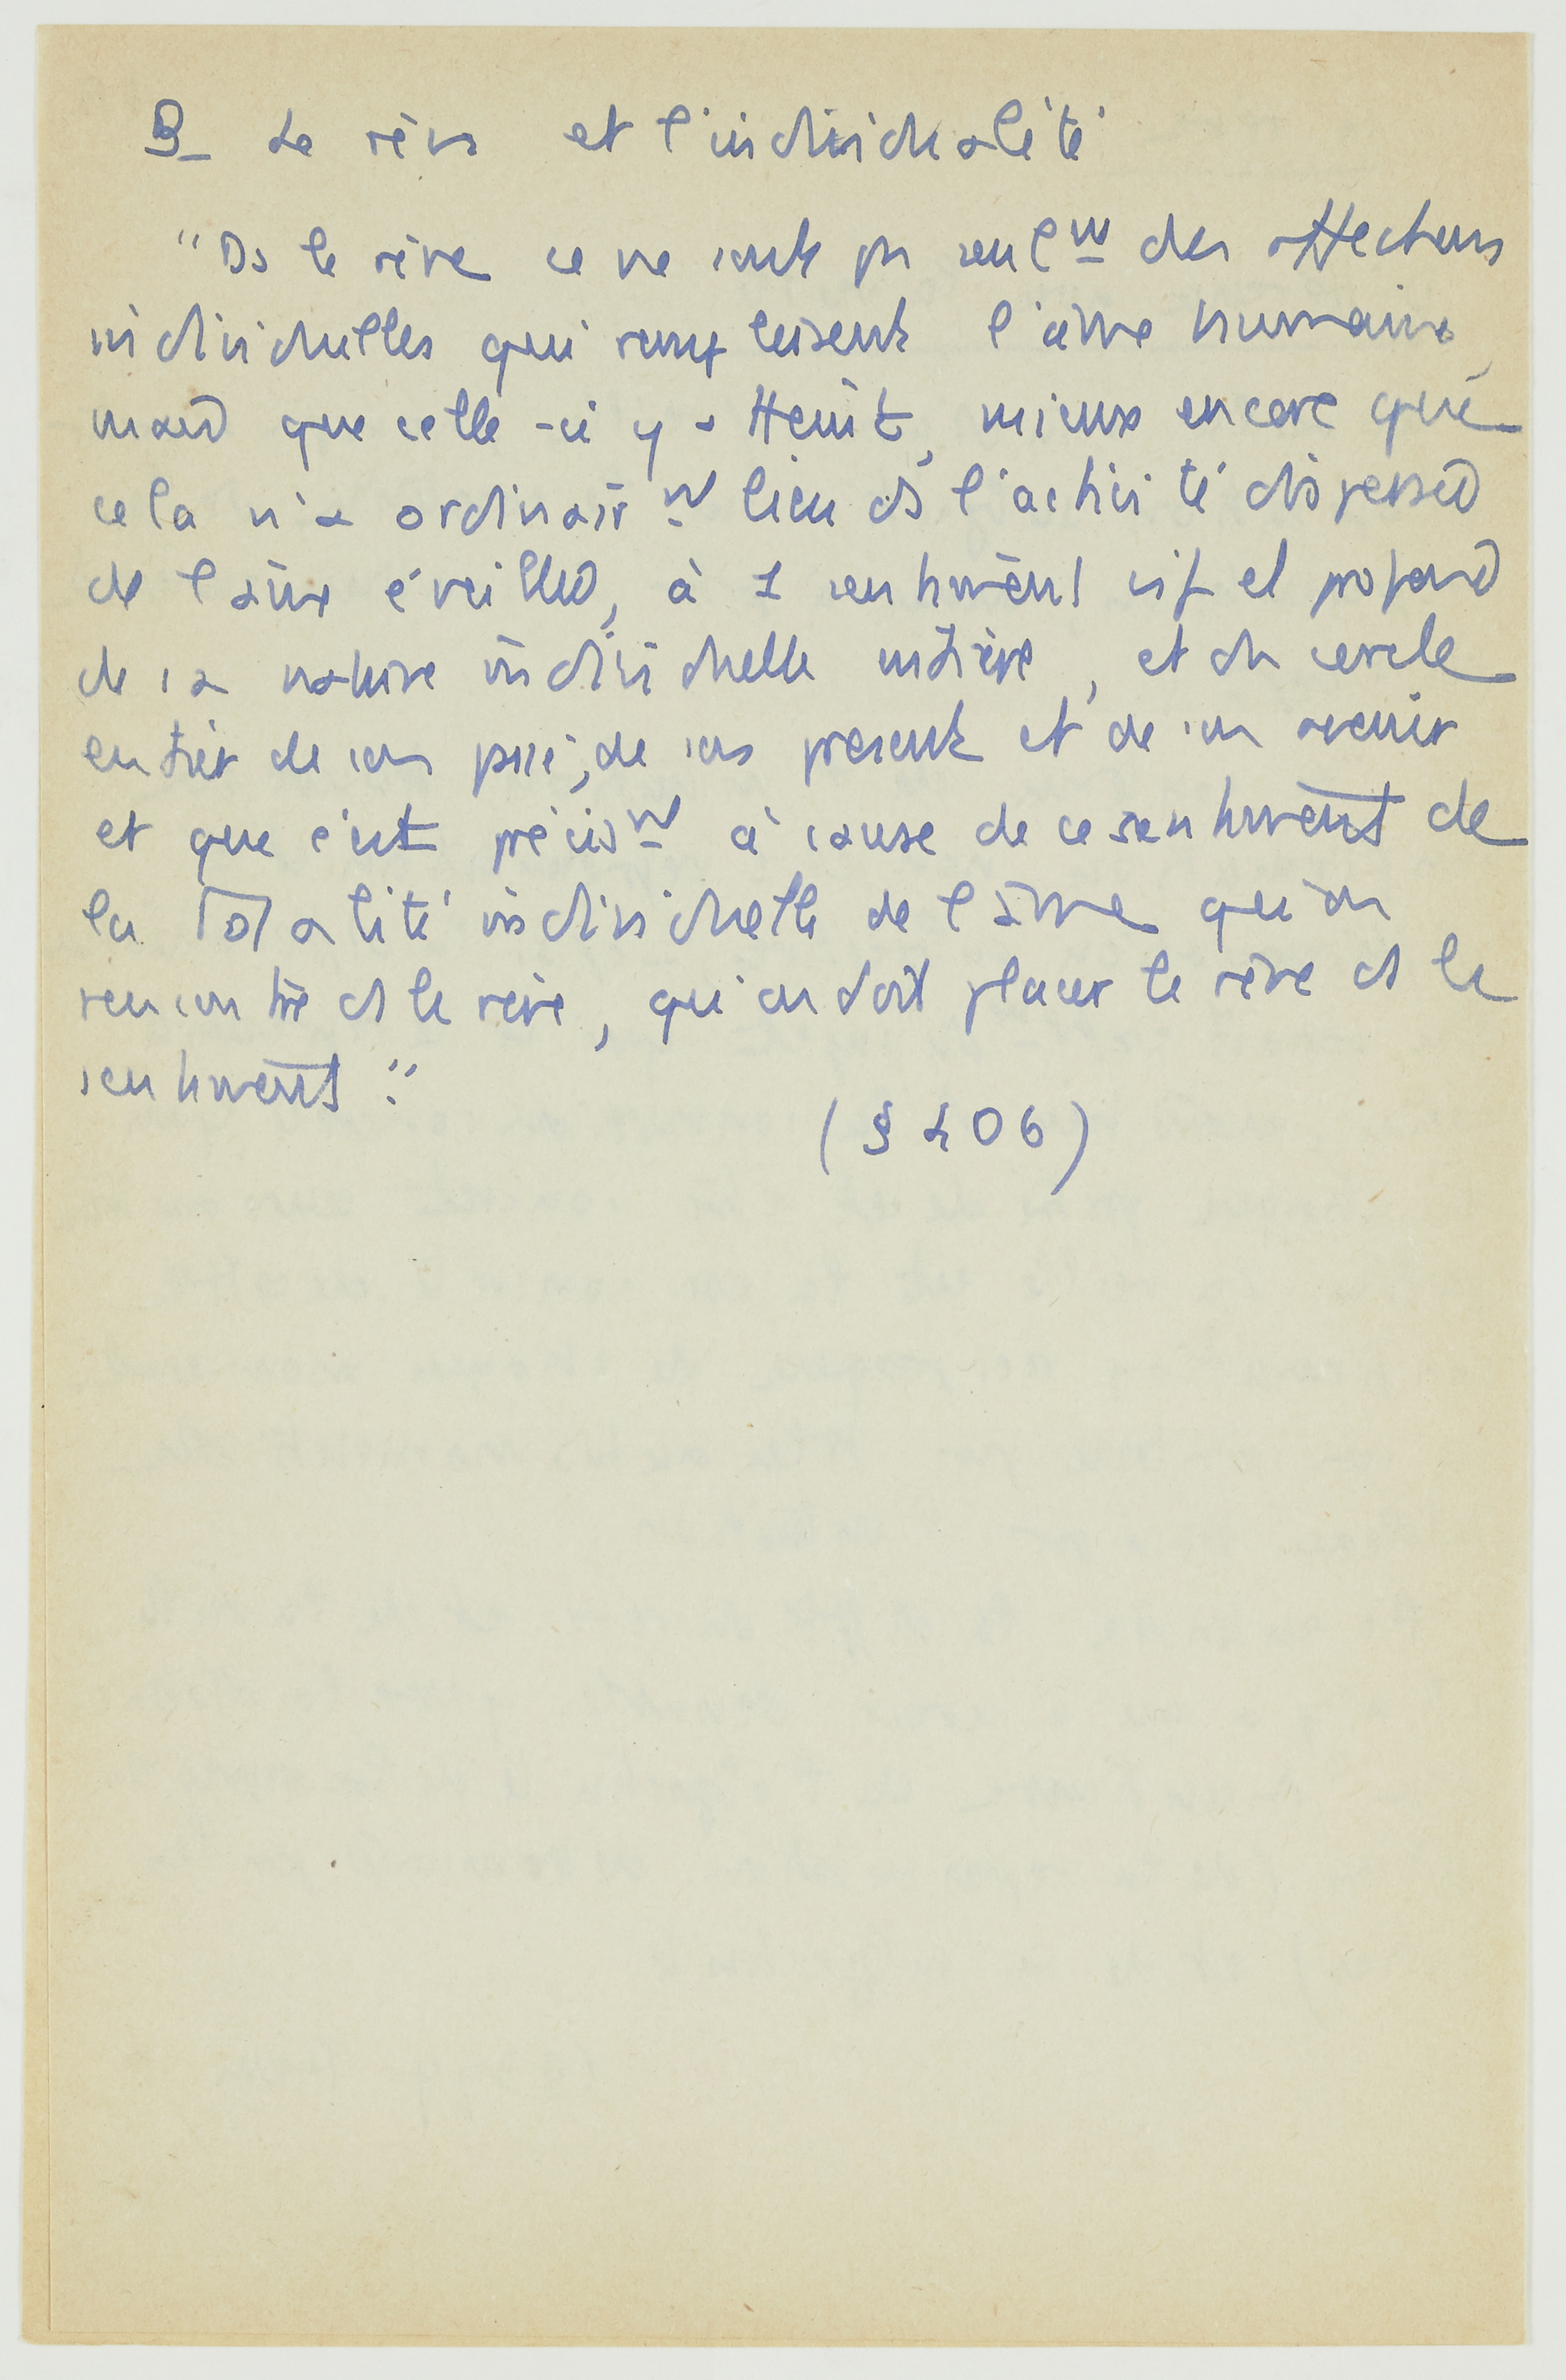 B_ Le rêve et l'individualité
"Ds le rêve ce ne sont pas seulmt des affections
individuelles qui remplissent l'âme humaine,
mais que celle-ci y atteint, mieux encore que
cela n'a ordinairmt lieu ds l'activité dispersée
de l'âme éveillée, à 1 sentiment vif et profond
de sa nature individuelle entière, et du cercle
entier de son passé, de son présent et de son avenir
et que c'est précismt à cause de ce sentiment de
la totalité individuelle de l'âme qu'on
rencontre ds le rêve, qu'on doit placer le rêve ds le
sentiment."
(§ 406)